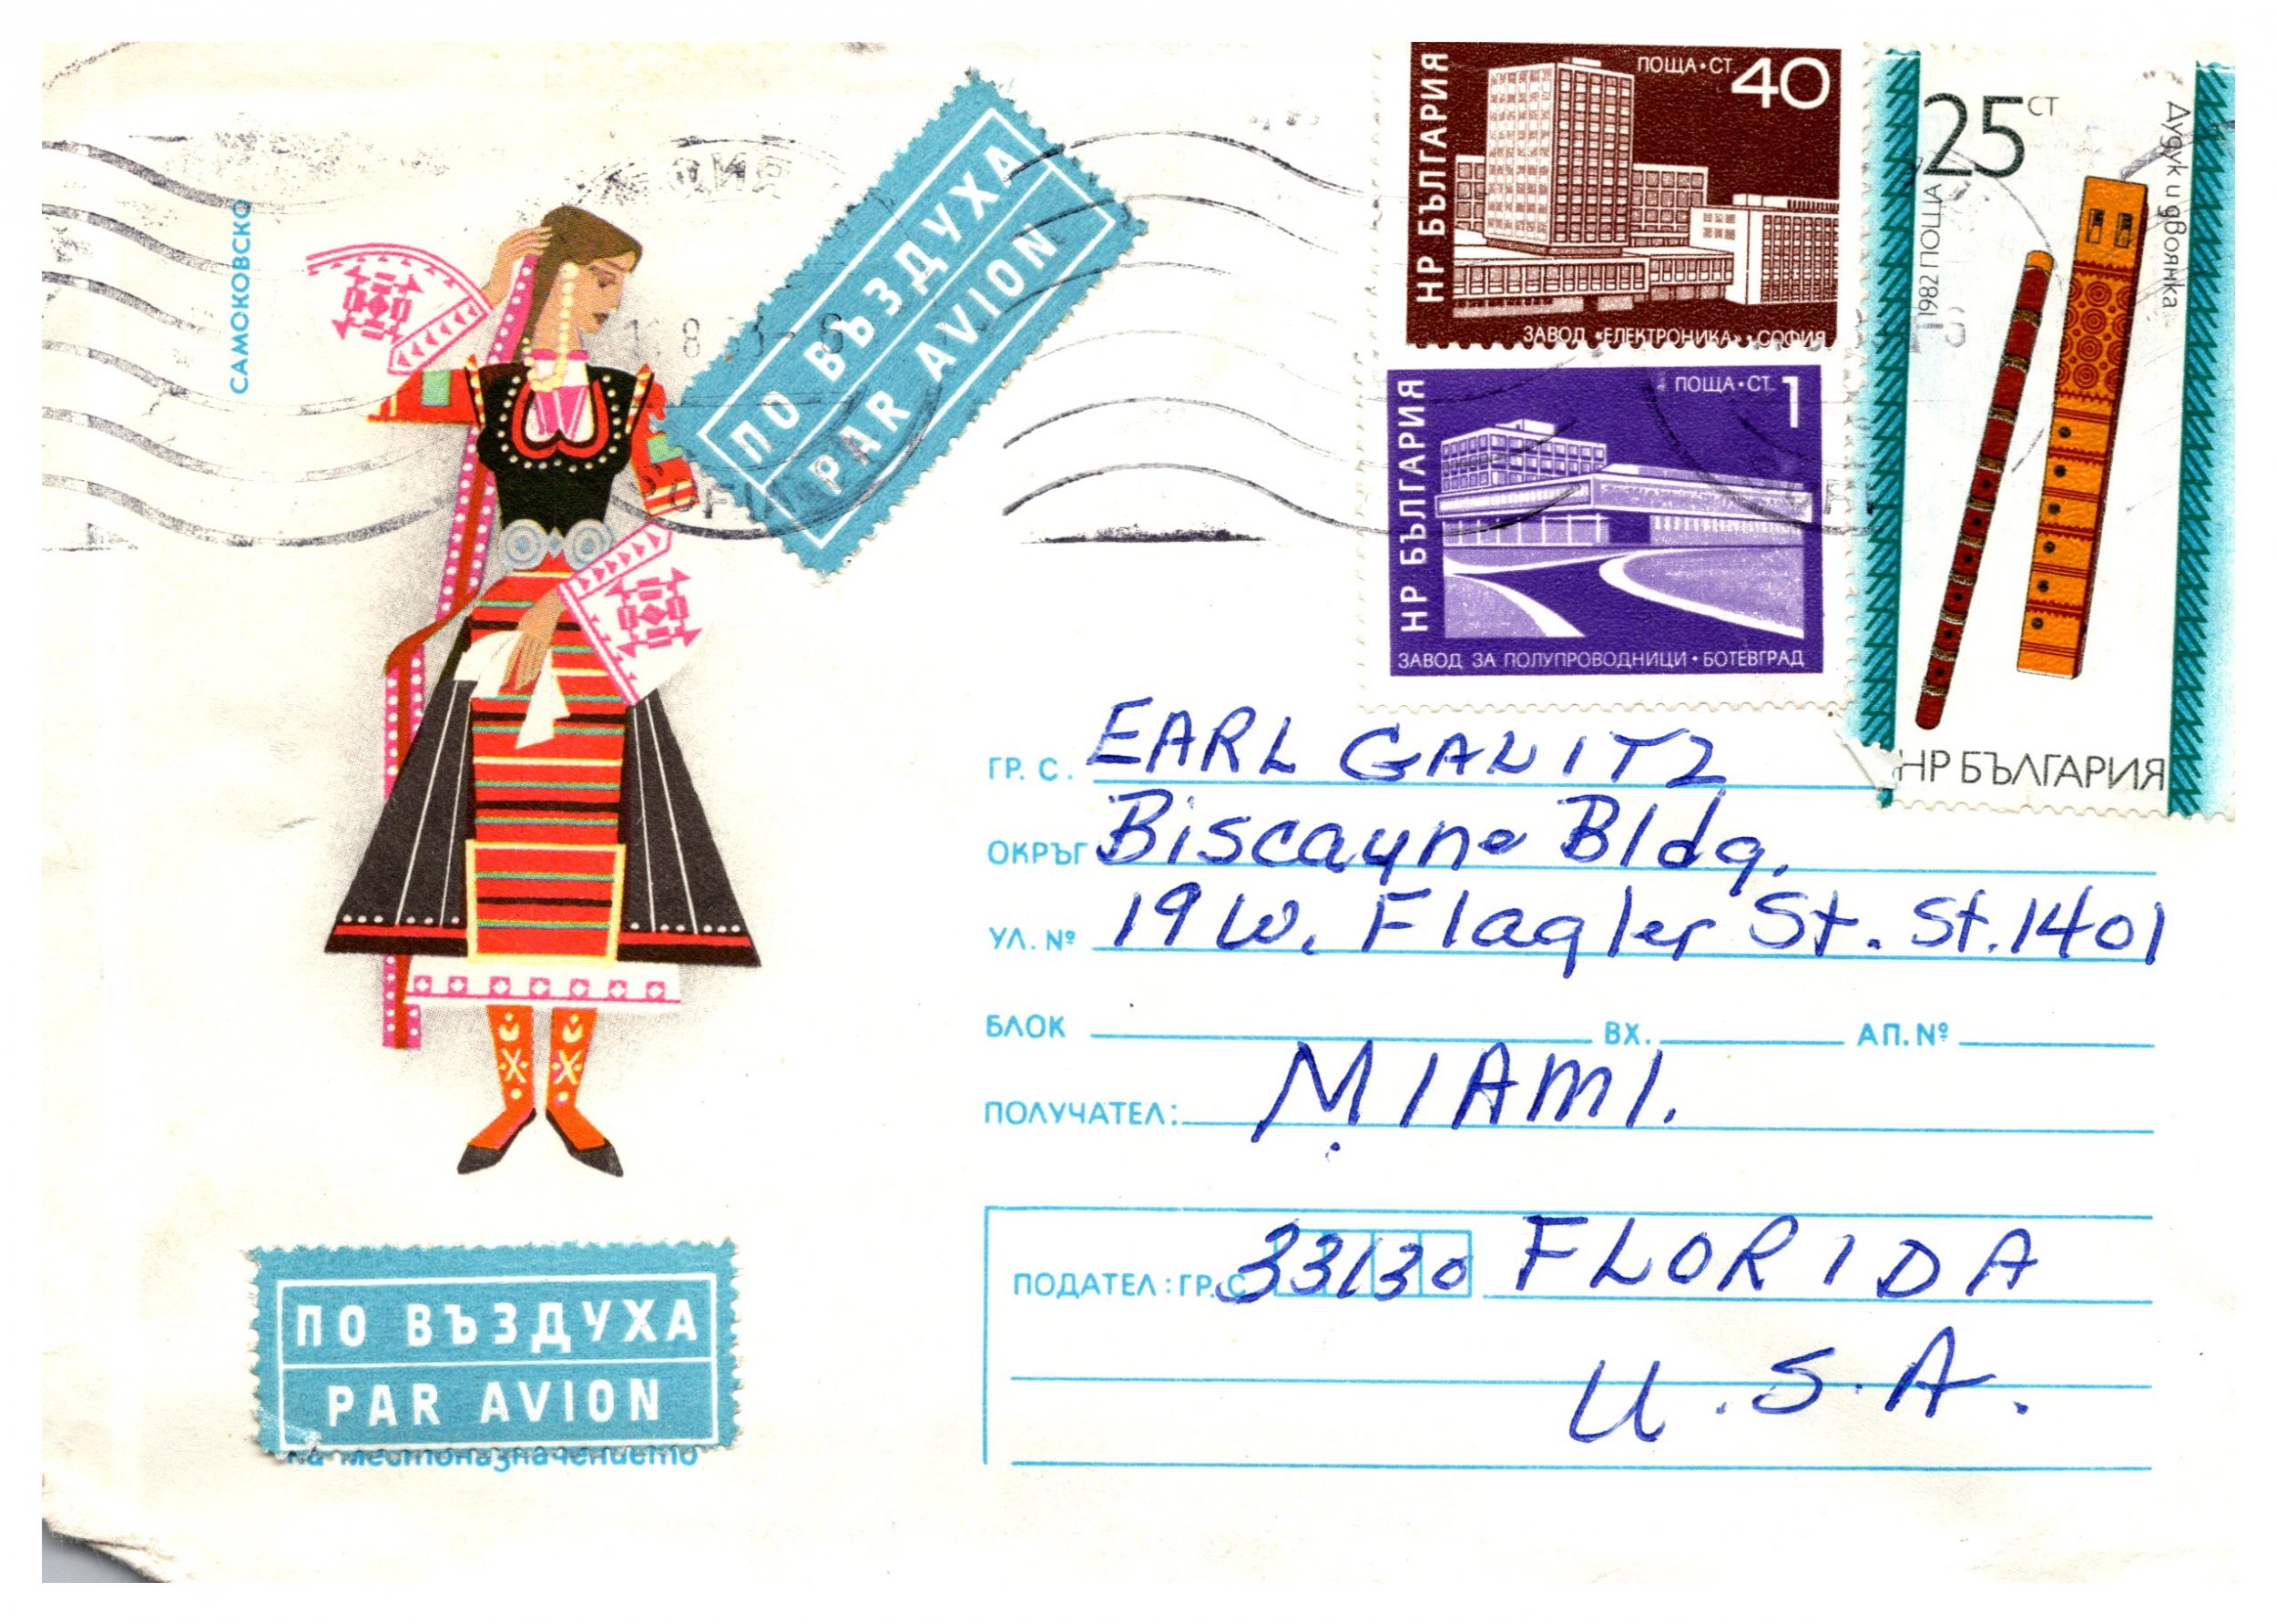 САМОКОВСКО
ПО ВЪЗДУХА
PAR AVION
НР БЪЛГАРИЯ
ПОЩА • СТ. 40
ЗАВОД «ЕЛЕКТРОНИКА» • СОФИЯ
НР БЪЛГАРИЯ
ПОЩА • СТ. 1
ЗАВОД ЗА ПОЛУПРОВОДНИЦИ • БОТЕВГРАД
25 СТ
1982 ПОЩА
Дудук и двоянка
НР БЪЛГАРИЯ
ГР. С. EARL GALITZ
ОКРЪГ Biscayne Bldg.
УЛ. № 19 W. Flagler St. St. 1401
БЛОК ВХ. АП. №
ПОЛУЧАТЕЛ: MIAMI.
ПОДАТЕЛ: ГР. С 33130 FLORIDA
U.S.A.
ПО ВЪЗДУХА
PAR AVION
на местоназначението